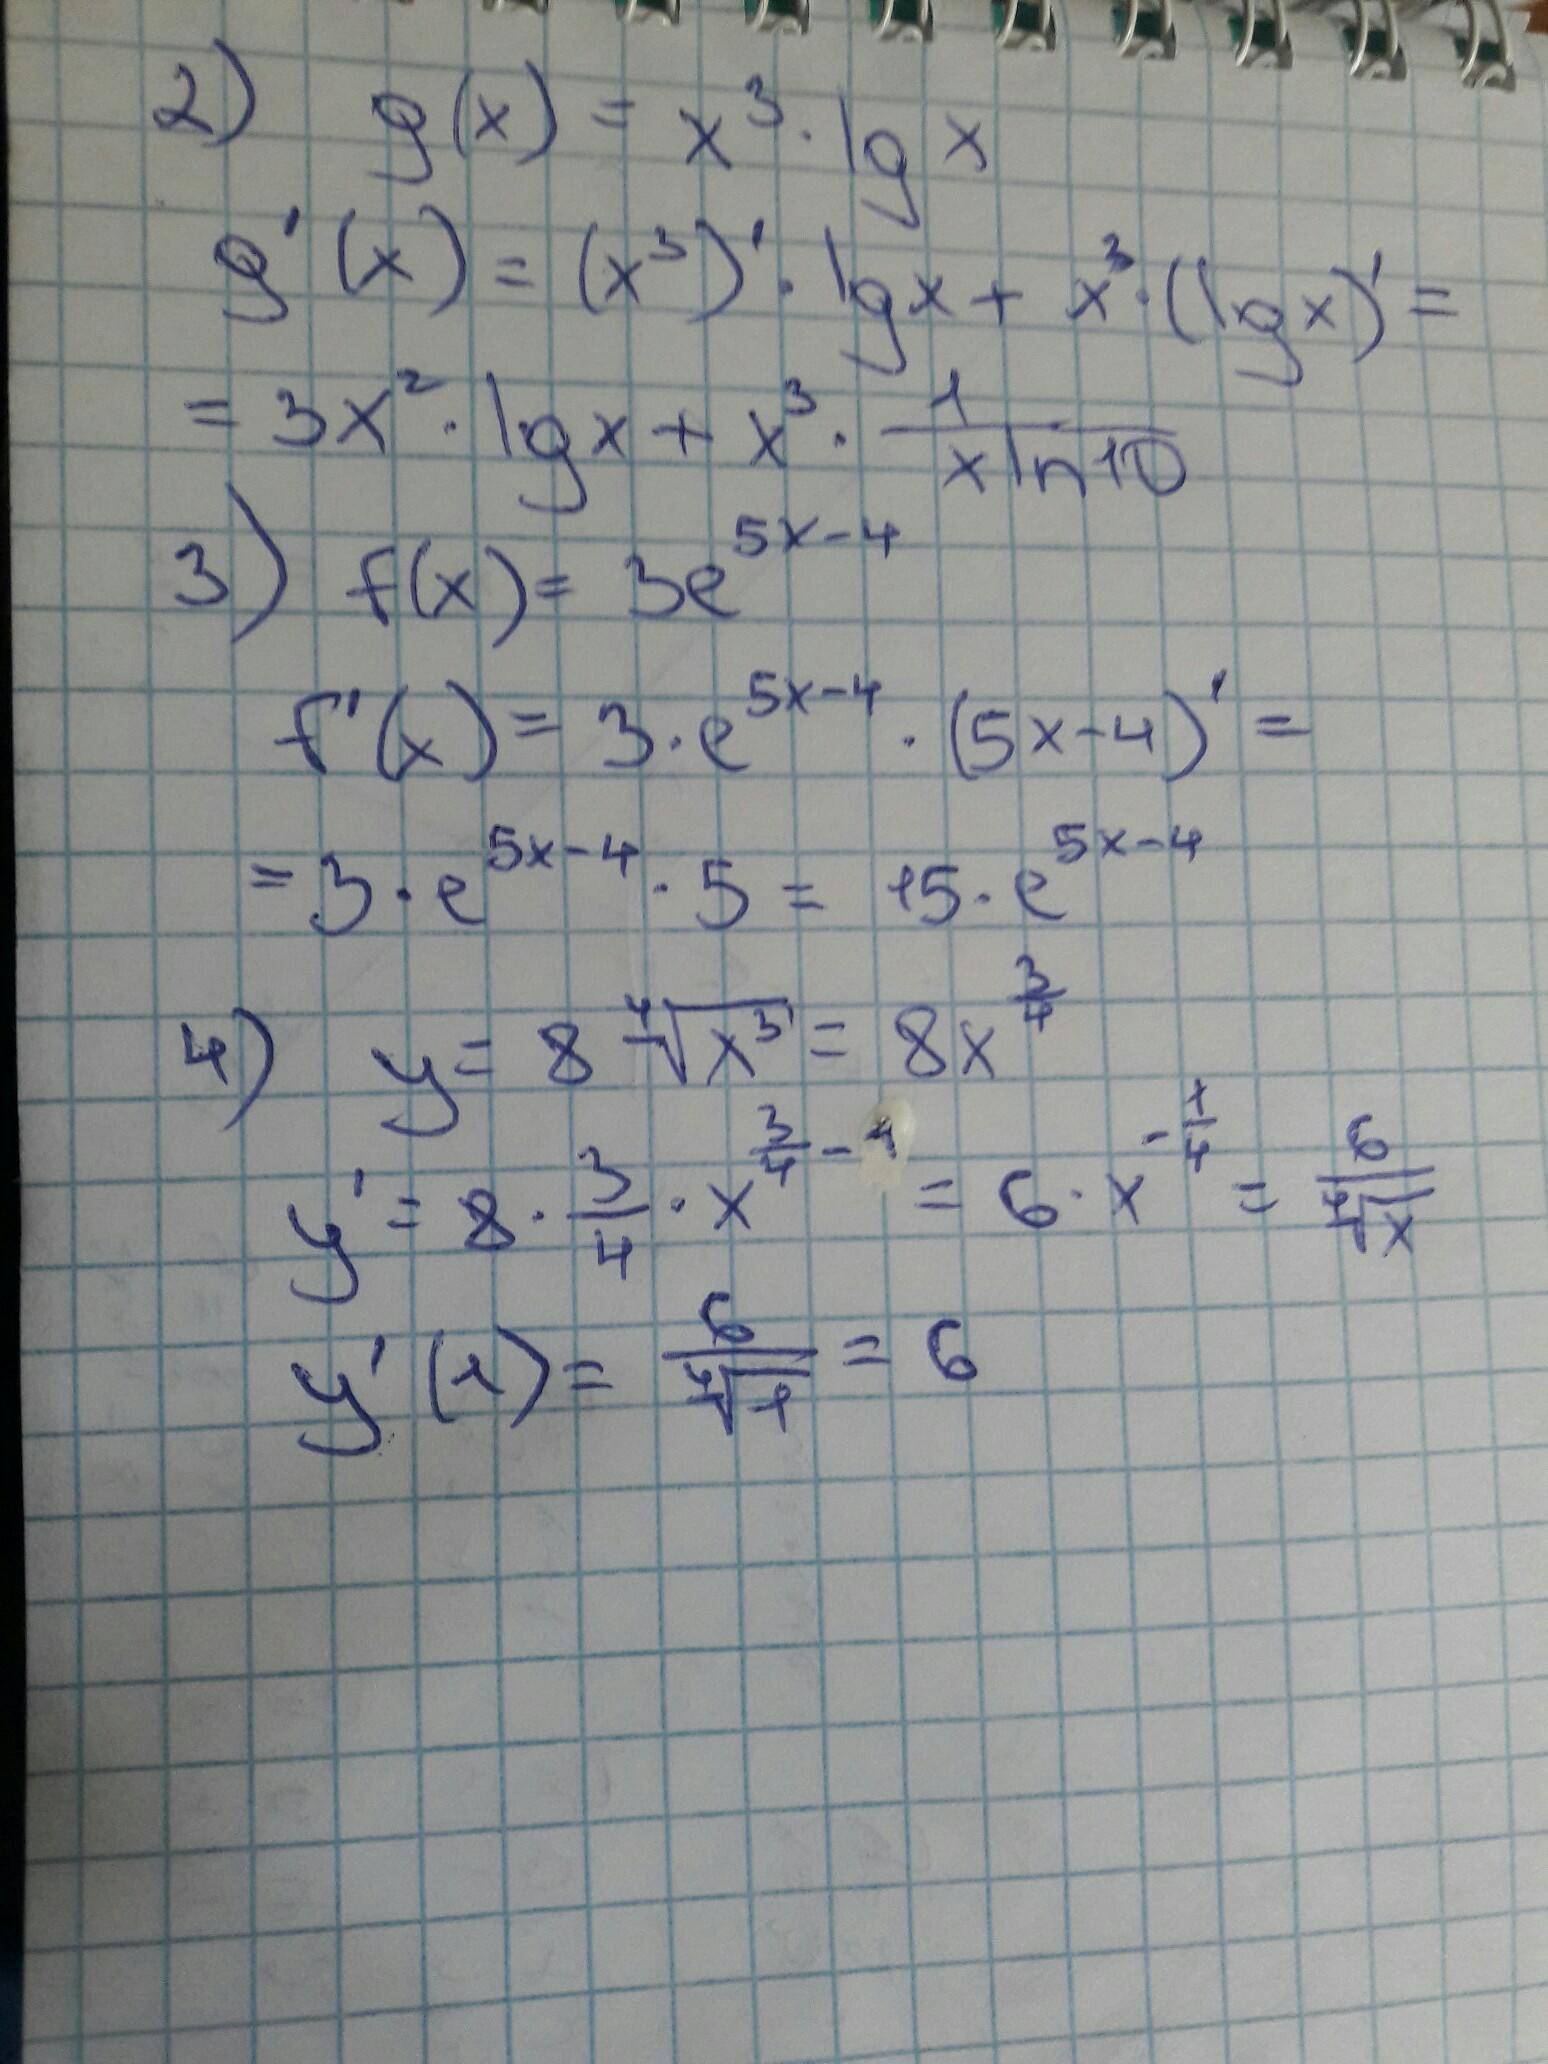 2) g(x) = x³ · lg x
g'(x) = (x³)' · lgx + x³ · (lgx)' =
= 3x² · lgx + x³ · 1/(x ln10)
3) f(x) = 3e^(5x-4)
f'(x) = 3 · e^(5x-4) · (5x-4)' =
= 3 · e^(5x-4) · 5 = 15 · e^(5x-4)
4) y = 8 ⁴√(x³) = 8x^(3/4)
y' = 8 · 3/4 · x^(3/4 - 1) = 6 · x^(-1/4) = 6/⁴√x
y'(1) = 6/⁴√1 = 6